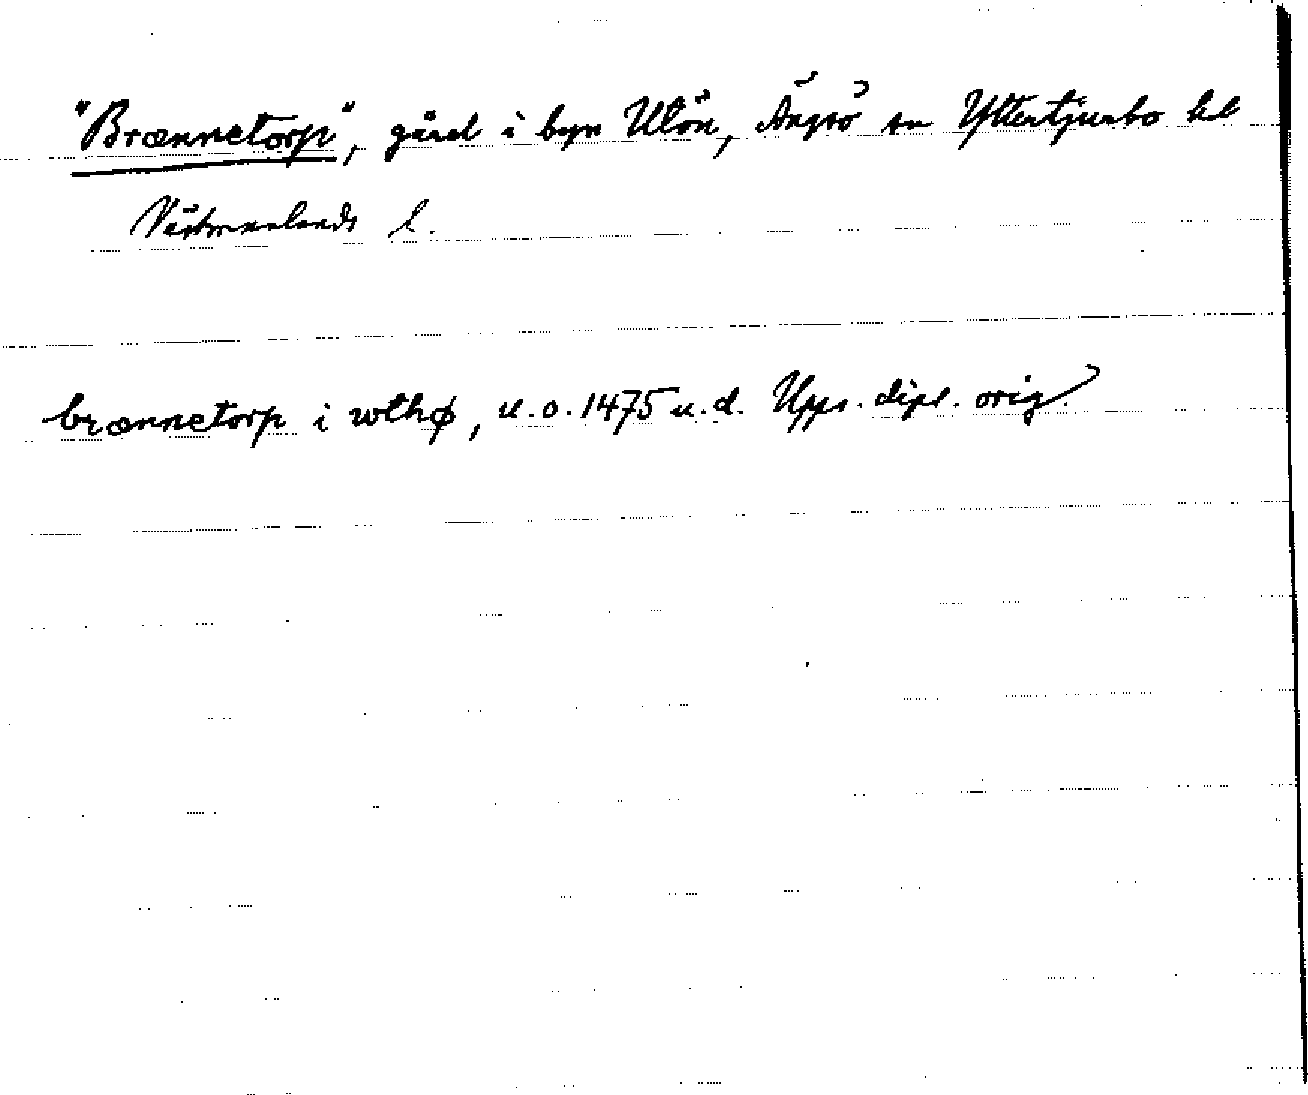 "Brænnetorp", gård i byn Ulön, Ängsö sn Yttertjurbo hd
Västmanlands l.
brænnetorp i wlhø, u.o. 1475 u.d. Upps. dipl. orig.